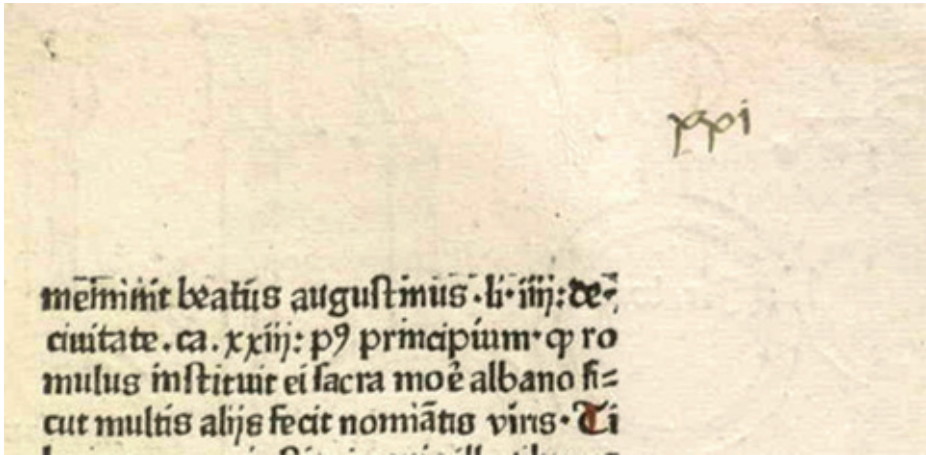 xxi
mēminit beatus augustinus ·li· iiij: de·
ciuitate . ca . xxiij: pꝰ principium· ꝙ ro
mulus instituit ei sacra moē albano si⸗
cut multis alijs fecit nomiātis viris · Ti